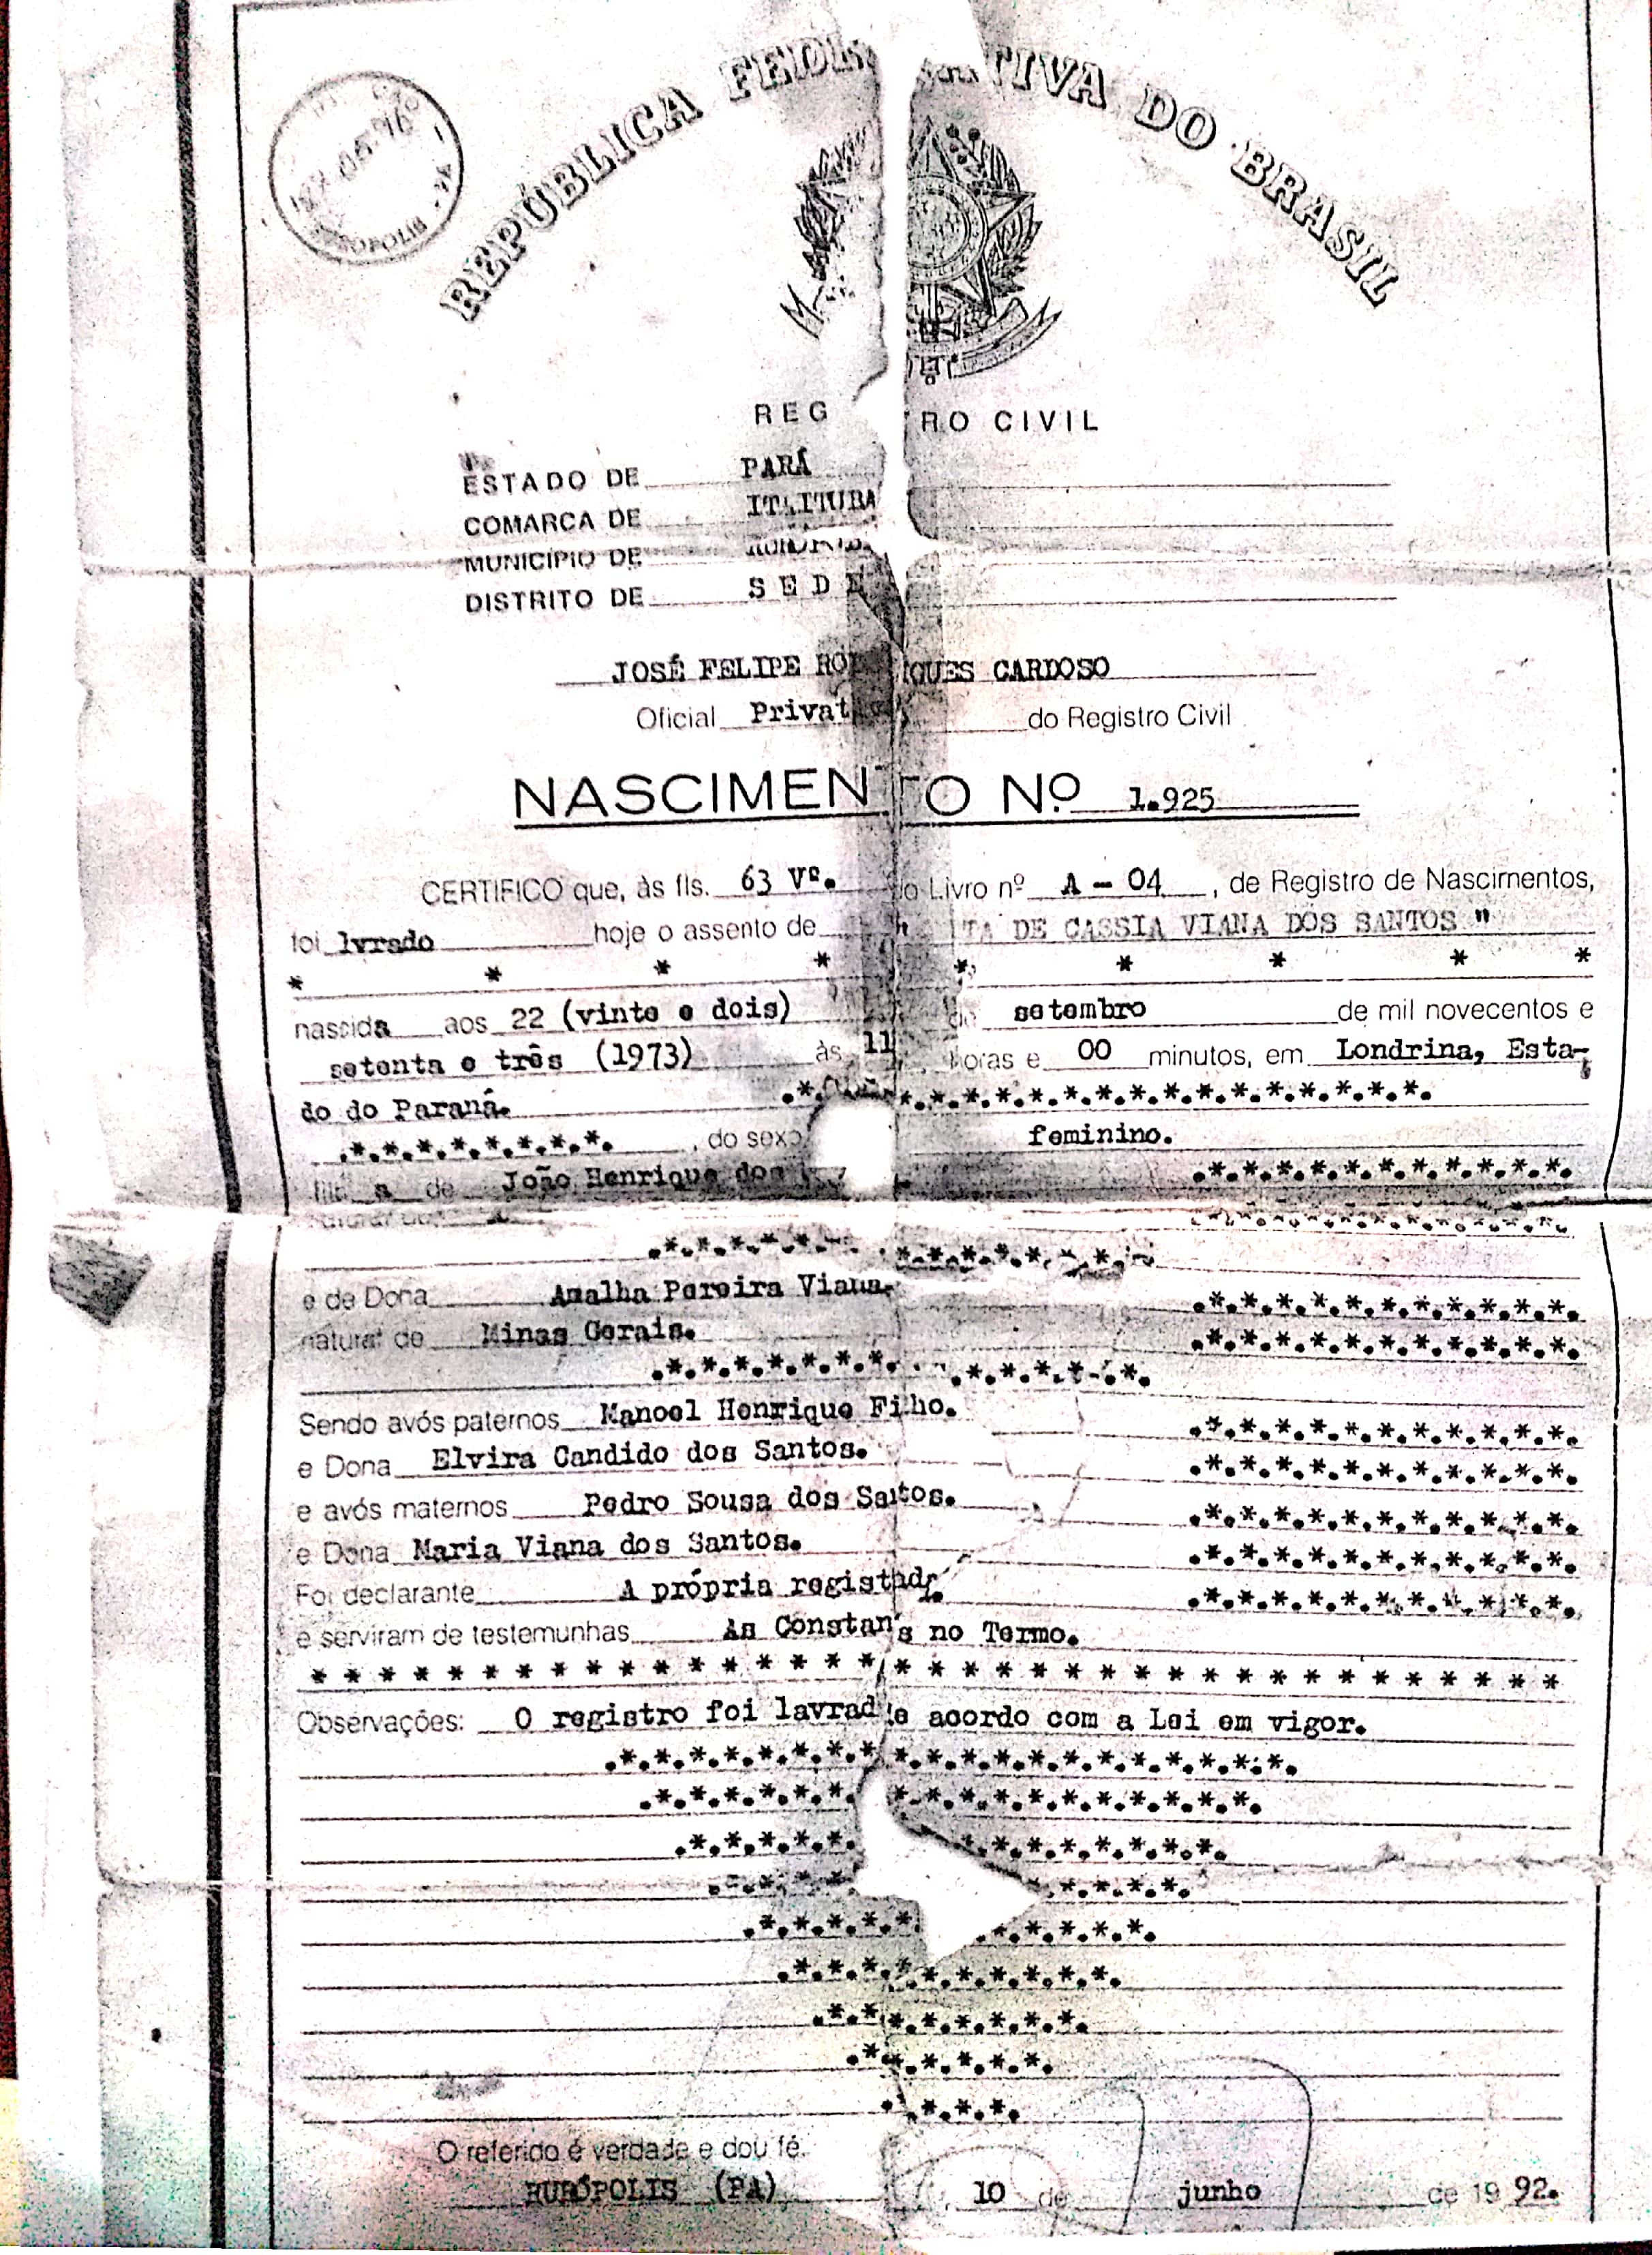 REPÚBLICA FEDE ATIVA DO BRASIL
REG TRO CIVIL
ESTADO DE PARÁ
COMARCA DE ITAITUBA
MUNICÍPIO DE
DISTRITO DE SEDE
JOSÉ FELIPE RO IGUES CARDOSO
Oficial Privat do Registro Civil
NASCIMENTO Nº 1.925
CERTIFICO que, às fls. 63 Vº. do Livro nº A - 04, de Registro de Nascimentos,
foi lvrado hoje o assento de " TA DE CASSIA VIANA DOS SANTOS "
* * * * * * * * *
nascida aos 22 (vinte e dois) de setembro de mil novecentos e
setenta e três (1973) às 11 horas e 00 minutos, em Londrina, Esta-
do do Paraná. .*. .*.*.*.*.*.*.*.*.*.*.*.*.*.*.*.
.*.*.*.*.*.*.*.*. , do sexo feminino.
filha de João Henrique dos .*.*.*.*.*.*.*.*.*.*.*.
natural de
.*.*.*.*.*. *.*.*.*.*.*.*.
e de Dona Amalha Pereira Viana. .*.*.*.*.*.*.*.*.*.*.*.
natural de Minas Gerais. .*.*.*.*.*.*.*.*.*.*.*.
.*.*.*.*.*.*.*. .*.*.*.*.*.*.
Sendo avós paternos Manoel Henrique Filho. .*.*.*.*.*.*.*.*.*.*.*.
e Dona Elvira Candido dos Santos. .*.*.*.*.*.*.*.*.*.*.*.
e avós maternos Pedro Sousa dos Satos. .*.*.*.*.*.*.*.*.*.*.*.
e Dona Maria Viana dos Santos. .*.*.*.*.*.*.*.*.*.*.*.
Foi declarante A própria registad .*.*.*.*.*.*.*.*.*.*.*.
e serviram de testemunhas As Constan s no Termo.
* * * * * * * * * * * * * * * * * * * * * * * * * * * * * * * * * * * * *
Observações: O registro foi lavrad e acordo com a Lei em vigor.
.*.*.*.*.*.*.*.*.*.*.*.*.*.*.*.*.*.*.*.*.
.*.*.*.*.*.*. *.*.*.*.*.*.*.*.*.*.*.
.*.*.*.*.*. *.*.*.*.*.*.*.*.
.*.*.*.* *.*.*.*.*.
.*.*.*.*.* .*.*.*.*.*.
.*.*.*.*.*.*.*.*.*.*.
.*.*.*.*.*.*.*.*.
.*.*.*.*.*.*.
.*.*.*.*.
O referido é verdade e dou fé.
RURÓPOLIS (PA), 10 de junho de 1992.